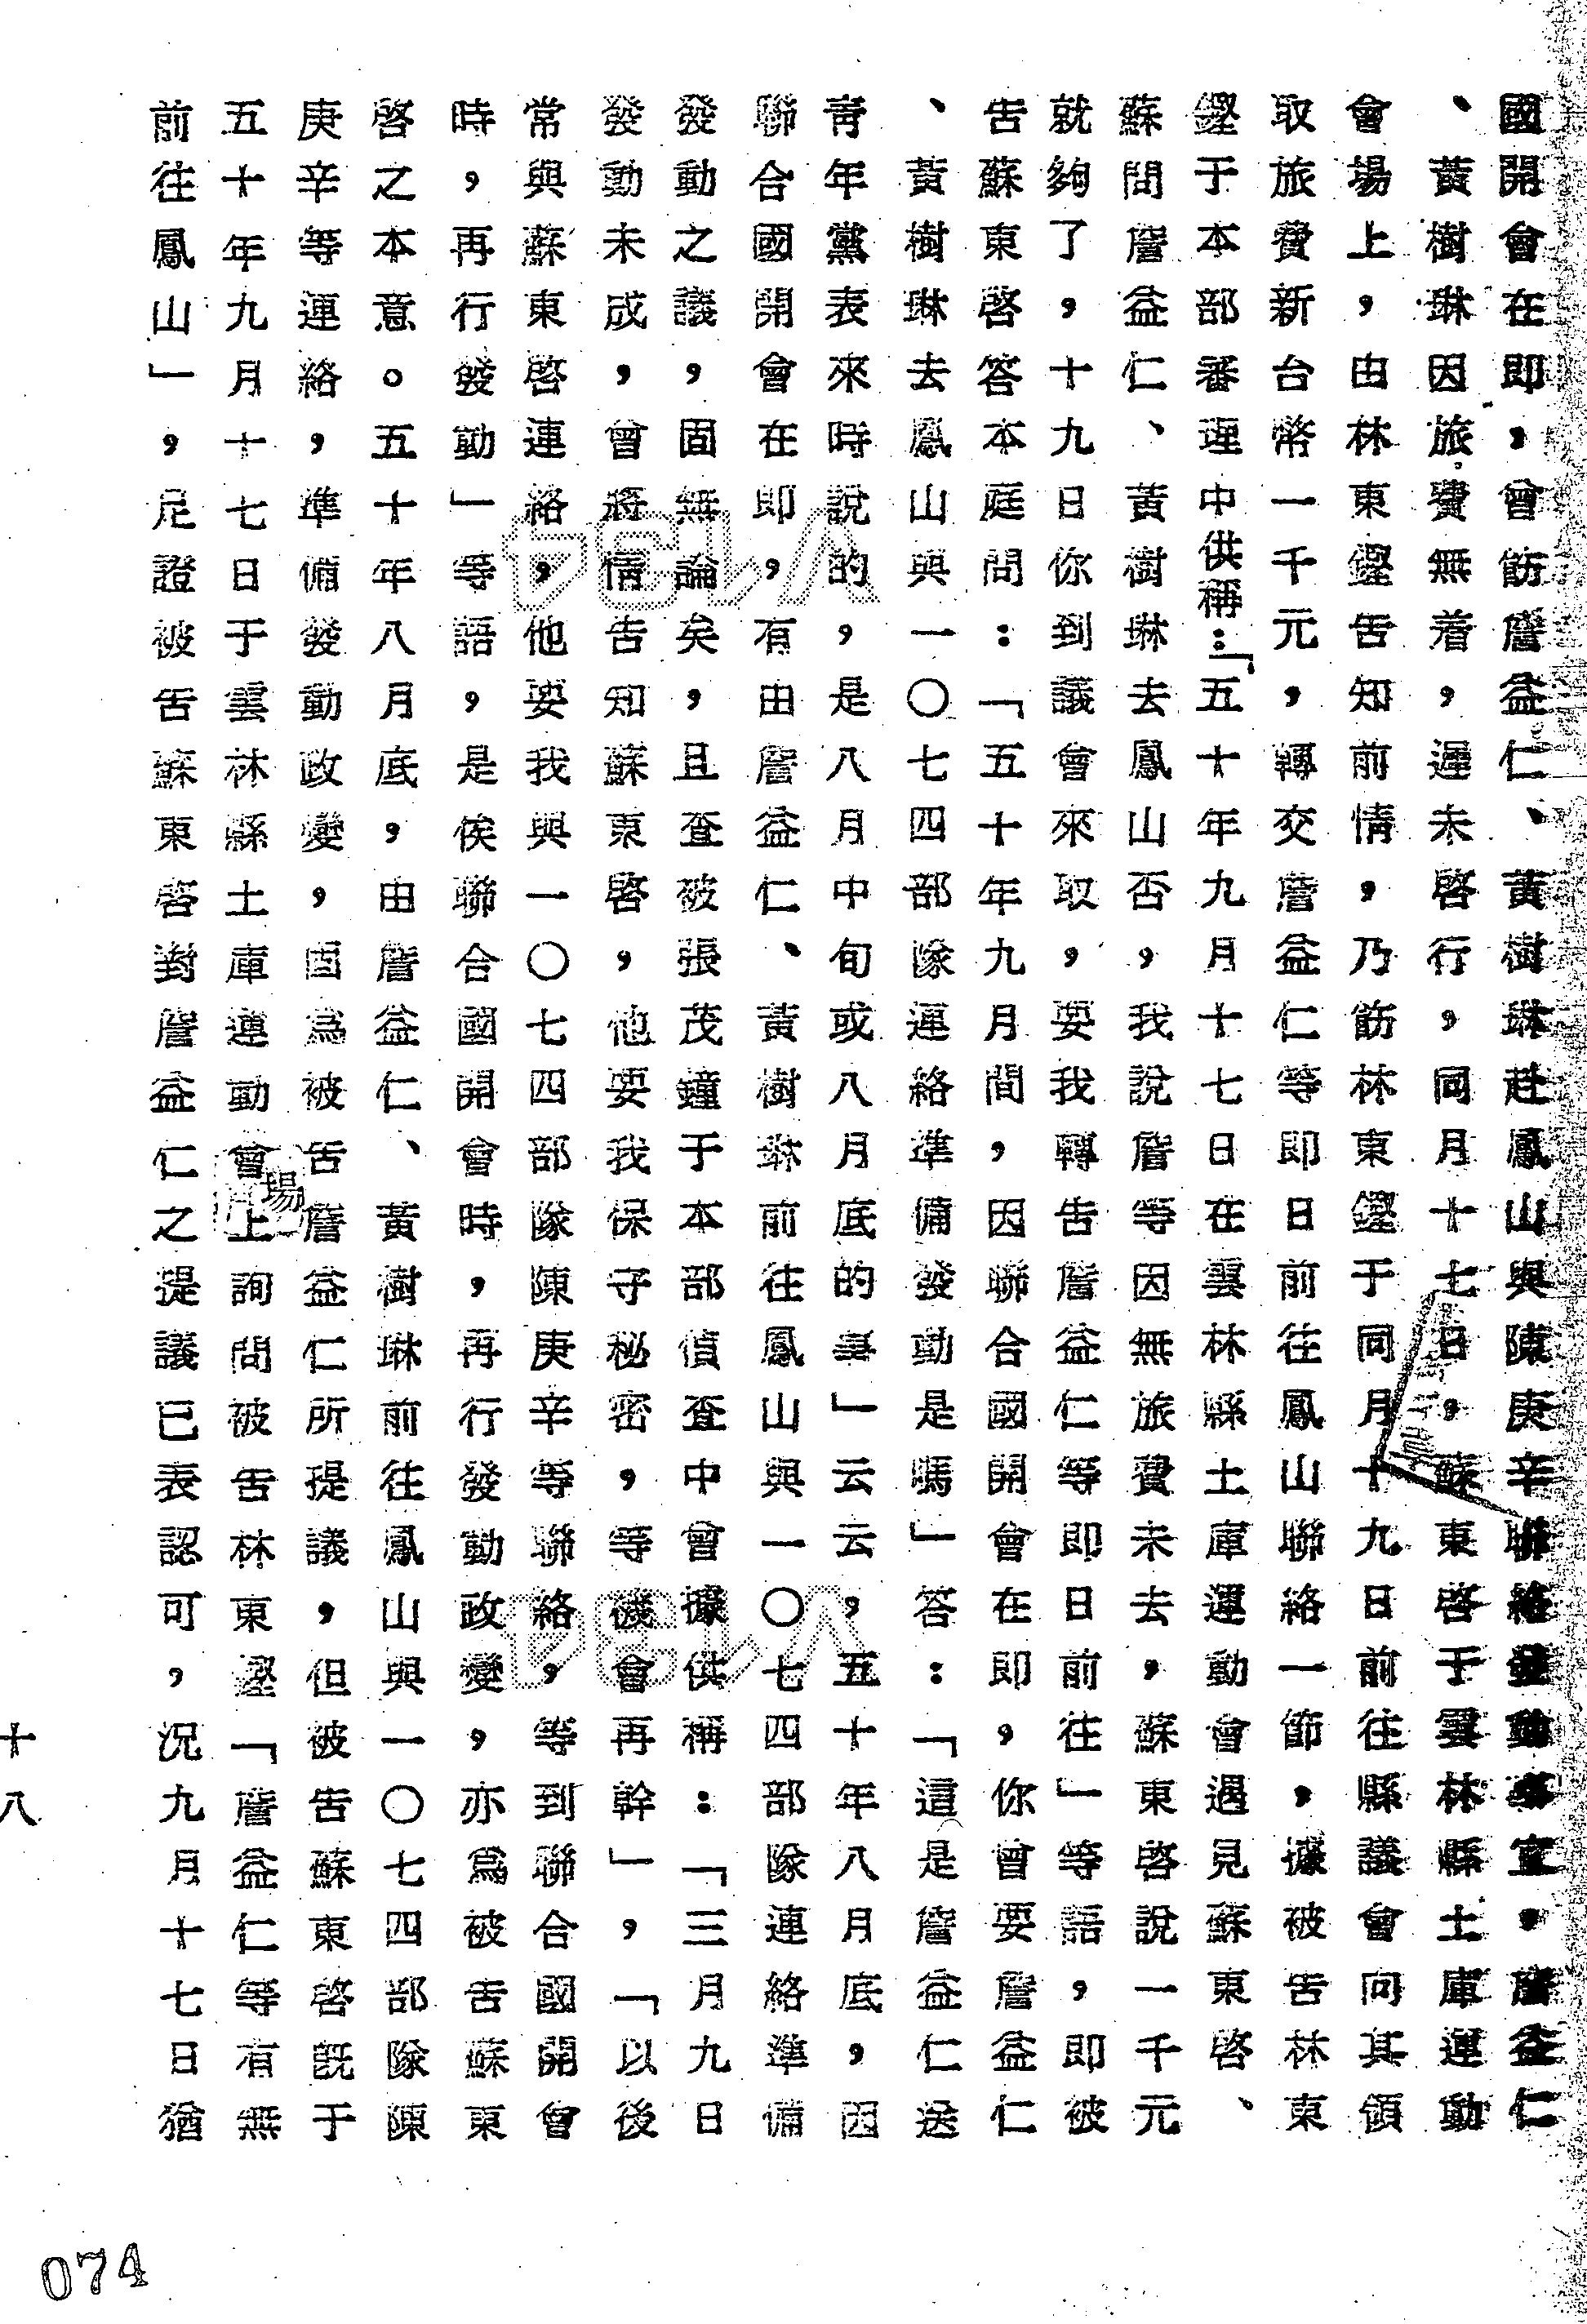 國開會在即,曾飭詹益仁、黃樹琳赴鳳山與陳庚辛聯絡發動事宜,詹益仁
、黃樹琳因旅費無着,遲未啓行,同月十七日,蘇東啓于雲林縣土庫運動
會場上,由林東鏗告知前情,乃飭林東鏗于同月十九日前往縣議會向其領
取旅費新台幣一千元,轉交詹益仁等即日前往鳳山聯絡一節,據被告林東
鏗于本部審理中供稱:「五十年九月十七日在雲林縣土庫運動會遇見蘇東啓、
蘇問詹益仁、黃樹琳去鳳山否,我說詹等因無旅費未去,蘇東啓說一千元
就夠了,十九日你到議會來取,要我轉告詹益仁等即日前往」等語,即被
告蘇東啓答本庭問:「五十年九月間,因聯合國開會在即,你曾要詹益仁
、黃樹琳去鳳山與一〇七四部隊連絡準備發動是嗎」答:「這是詹益仁送
青年黨表來時說的,是八月中旬或八月底的事」云云,五十年八月底,因
聯合國開會在即,有由詹益仁、黃樹琳前往鳳山與一〇七四部隊連絡準備
發動之議,固無論矣,且查被張茂鐘于本部偵查中曾據供稱:「三月九日
發動未成,曾將情告知蘇東啓,他要我保守秘密,等機會再幹」,「以後
常與蘇東啓連絡,他要我與一〇七四部隊陳庚辛等聯絡,等到聯合國開會
時,再行發動」等語,是俟聯合國開會時,再行發動政變,亦為被告蘇東
啓之本意。五十年八月底,由詹益仁、黃樹琳前往鳳山與一〇七四部隊陳
庚辛等連絡,準備發動政變,固為被告詹益仁所提議,但被告蘇東啓既于
五十年九月十七日于雲林縣土庫運動會場上詢問被告林東鏗「詹益仁等有無
前往鳳山」,足證被告蘇東啓對詹益仁之提議已表認可,况九月十七日猶
十八
074